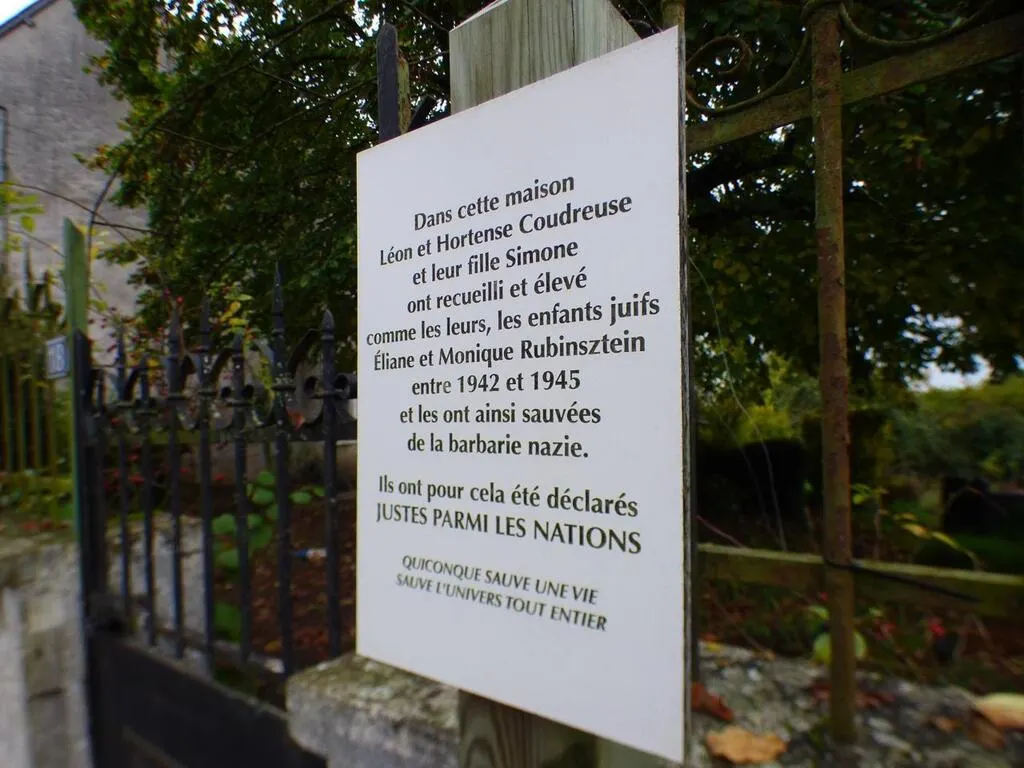 Dans cette maison
Léon et Hortense Coudreuse
et leur fille Simone
ont recueilli et élevé
comme les leurs, les enfants juifs
Éliane et Monique Rubinsztein
entre 1942 et 1945
et les ont ainsi sauvées
de la barbarie nazie.
Ils ont pour cela été déclarés
JUSTES PARMI LES NATIONS
QUICONQUE SAUVE UNE VIE
SAUVE L'UNIVERS TOUT ENTIER